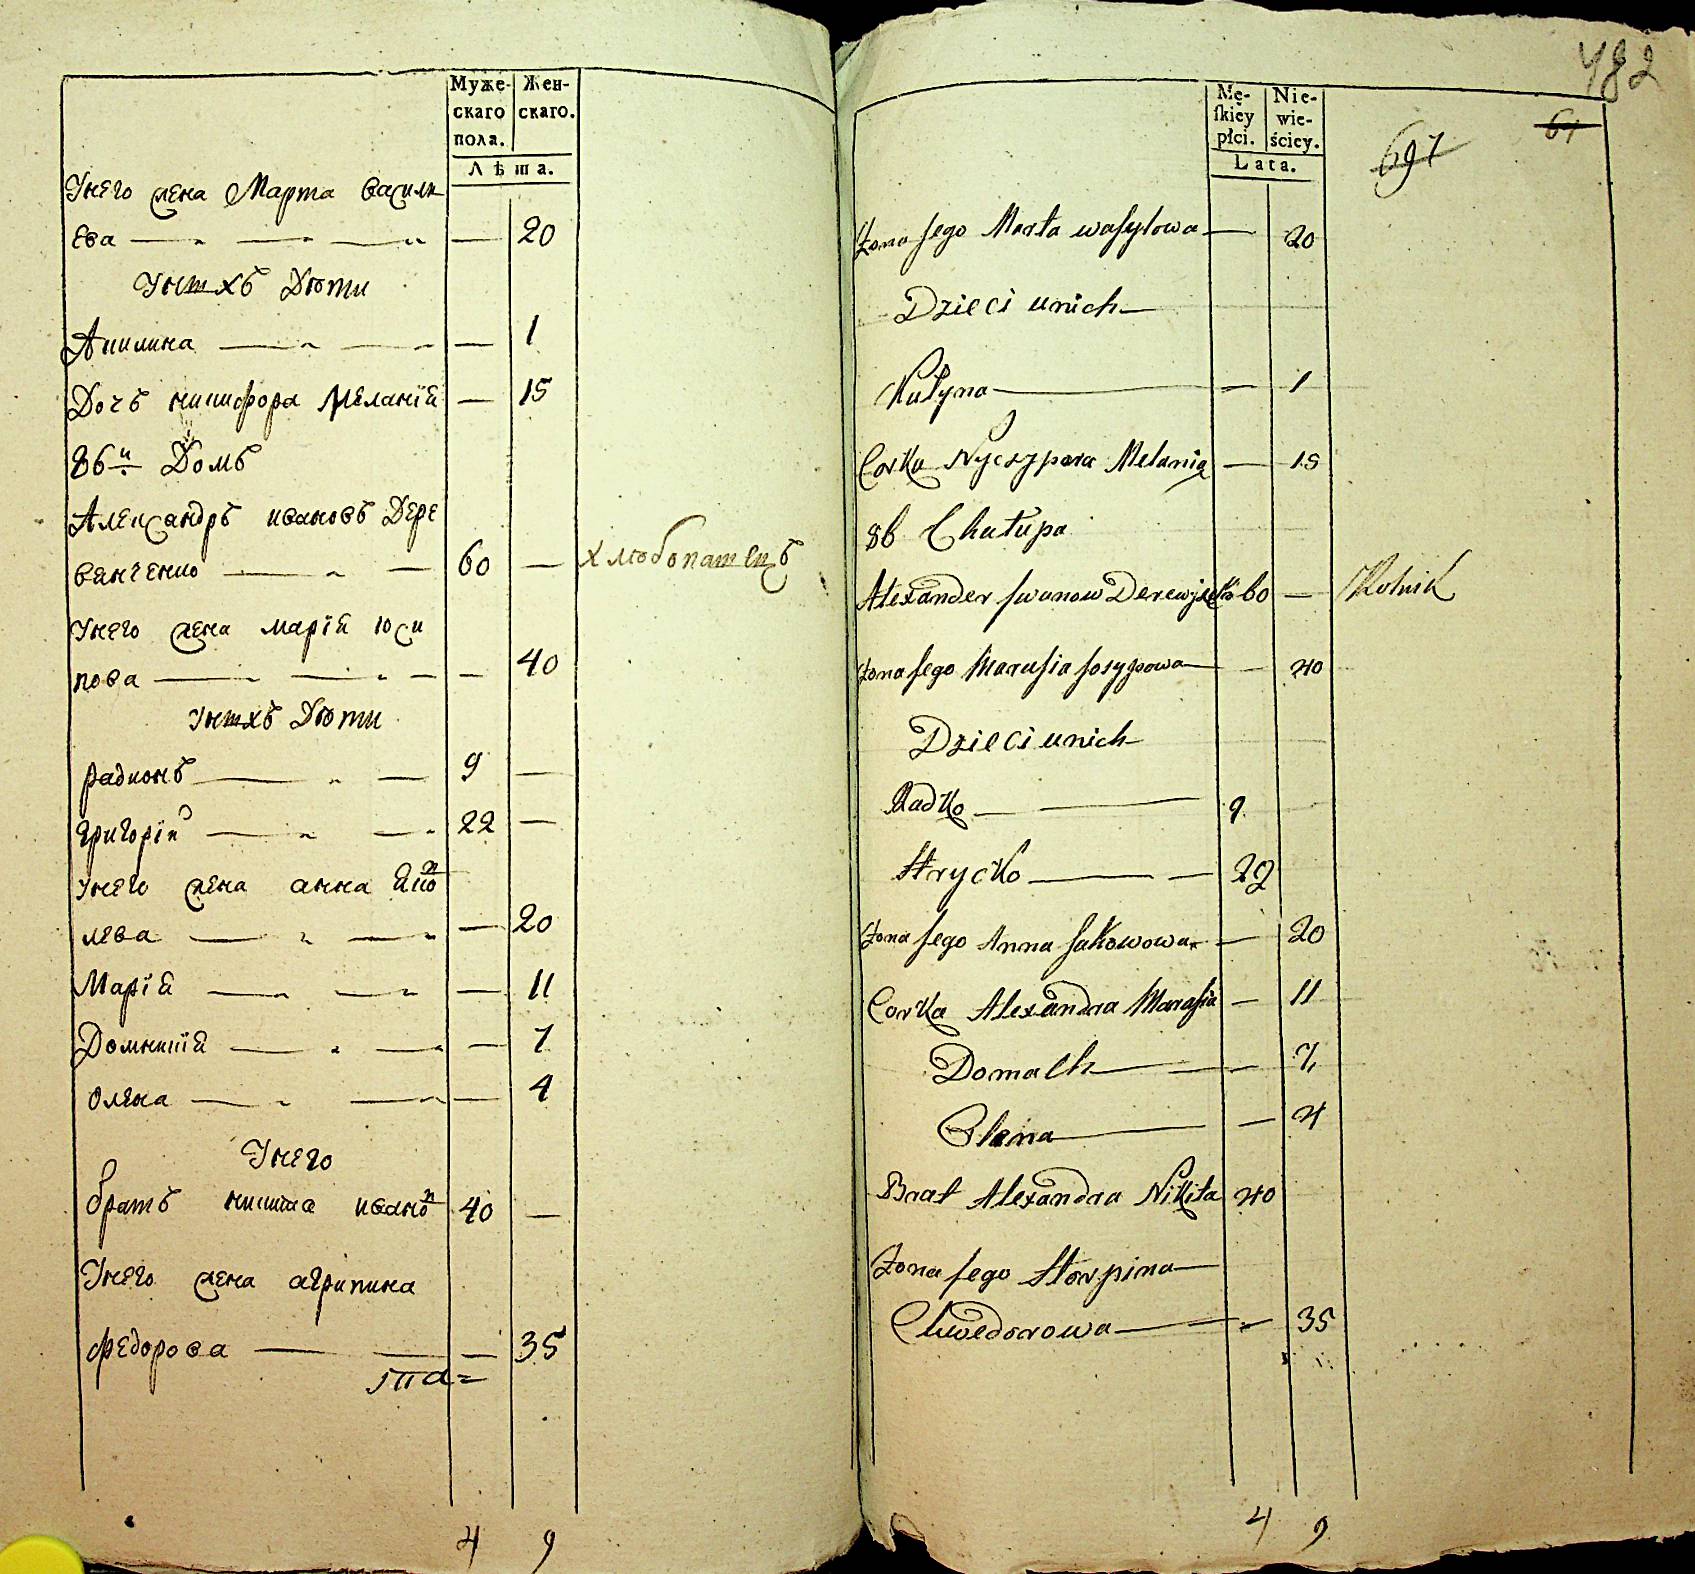 Муже-
скаго
пола.
Жен-
скаго.
Лѣта.
Унего жена Марта васили
ева 20
Унихъ Дѣти
Акилина 1
Дочъ никифора Меланїй 15
86й Домъ
Александръ ивановъ Дере
вянченко 60 хлѣбопатецъ
Унего жена марїй юси
пова 40
Унихъ Дѣти
радионъ 9
григорїй 22
унего жена анна яко
лева 20
Марїй 11
Домникїй 7
олена 4
Унего
братъ никита иванов 40
Унего жена агрипина
федорова 35
4 9
482
61
697
Mę-
ſkiey
płci.
Nie-
wie-
ściey.
Lata.
Żona Jego Marta wasylowa 20
Dzieci unich
Kulyna 1
Corka Nyczypora Melania 15
86 Chałupa
Alexander Jwanow Derewjecko 60 Rolnik
Żona Jego Marusia Josypowa 40
Dzieci unich
Radko 9
Hrycko 22
Żona Jego Anna Jakowowa 20
Corka Alexandra Marusia 11
Domach 7
Olena 4
Brat Alexandra Nikita 40
Żona Jego Horpina
Chwedorowa 35
4 9